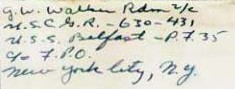 G. W. Walker Rdm 2/c
U.S.C.G.R. - 630-431
U.S.S. Belfast - P.F. 35
c/o F.P.O.
New York City, N.Y.